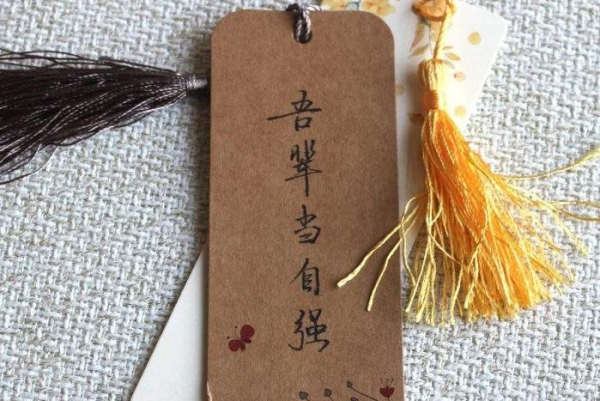 吾辈当自强